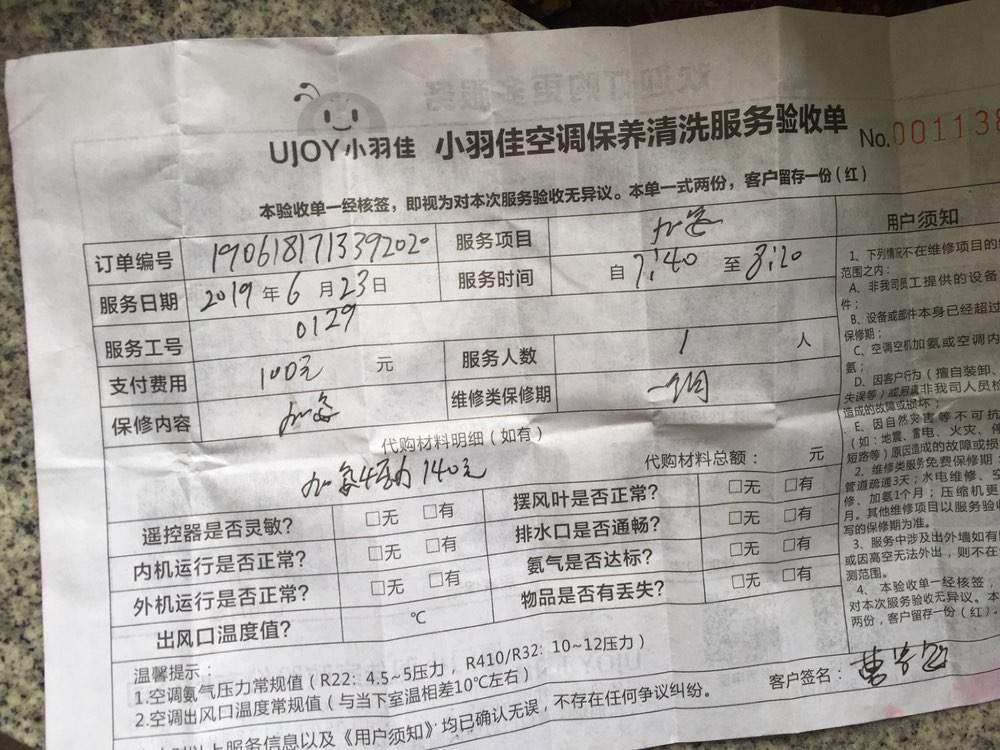 UJOY小羽佳 小羽佳空调保养清洗服务验收单 No.001138
本验收单一经核签，即视为对本次服务验收无异议。本单一式两份，客户留存一份（红）
订单编号 1906181713392020 服务项目 加氨
服务日期 2019年6月23日 服务时间 自7:40至8:20
服务工号 0129
支付费用 100元 元 服务人数 1 人
保修内容 加氨 维修类保修期 一个月
代购材料明细（如有）
加氨4压力 140元 代购材料总额： 元
遥控器是否灵敏? □无 □有 摆风叶是否正常? □无 □有
内机运行是否正常? □无 □有 排水口是否通畅? □无 □有
外机运行是否正常? □无 □有 氨气是否达标? □无 □有
出风口温度值? ℃ 物品是否有丢失? □无 □有
温馨提示：
1.空调氨气压力常规值（R22：4.5~5压力，R410/R32：10~12压力）
2.空调出风口温度常规值（与当下室温相差10℃左右）
以上服务信息以及《用户须知》均已确认无误，不存在任何争议纠纷。
客户签名：
用户须知
1、下列情况不在维修项目的
范围之内：
A、非我司员工提供的设备
件；
B、设备或部件本身已经超过
保修期；
C、空调空机加氨或空调内
氨；
D、因客户行为（擅自装卸、
失误等）或另请非我司人员检
造成的故障或损坏；
E、因自然灾害等不可抗
（如：地震、雷电、火灾、停
短路等）原因造成的故障或损
2、维修类服务免费保修期：
管道疏通3天；水电维修、空
修、加氨1个月；压缩机更
月。其他维修项目以服务验收
写的保修期为准。
3、服务中涉及出外墙如有
或因高空无法外出，则不在
测范围。
4、本验收单一经核签，
对本次服务验收无异议。本
两份，客户留存一份（红）.